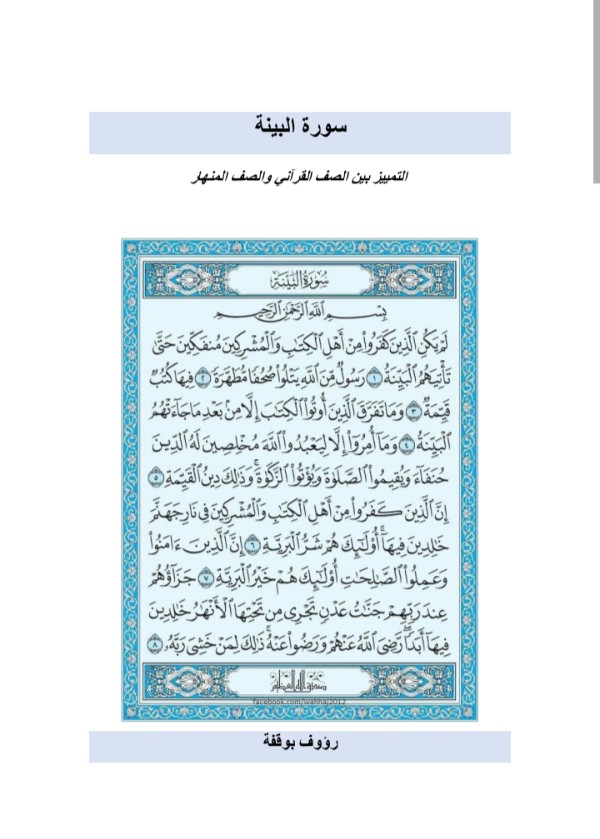 سورة البينة
التمييز بين الصف القرآني والصف المنهار
سُورَةُ الْبَيِّنَةِ
بِسْمِ اللَّهِ الرَّحْمَٰنِ الرَّحِيمِ
لَمْ يَكُنِ الَّذِينَ كَفَرُوا مِنْ أَهْلِ الْكِتَابِ وَالْمُشْرِكِينَ مُنفَكِّينَ حَتَّىٰ
تَأْتِيَهُمُ الْبَيِّنَةُ ١ رَسُولٌ مِّنَ اللَّهِ يَتْلُوا صُحُفًا مُّطَهَّرَةً ٢ فِيهَا كُتُبٌ
قَيِّمَةٌ ٣ وَمَا تَفَرَّقَ الَّذِينَ أُوتُوا الْكِتَابَ إِلَّا مِنْ بَعْدِ مَا جَاءَتْهُمُ
الْبَيِّنَةُ ٤ وَمَا أُمِرُوا إِلَّا لِيَعْبُدُوا اللَّهَ مُخْلِصِينَ لَهُ الدِّينَ
حُنَفَاءَ وَيُقِيمُوا الصَّلَوٰةَ وَيُؤْتُوا الزَّكَوٰةَ ۚ وَذَٰلِكَ دِينُ الْقَيِّمَةِ ٥
إِنَّ الَّذِينَ كَفَرُوا مِنْ أَهْلِ الْكِتَابِ وَالْمُشْرِكِينَ فِي نَارِ جَهَنَّمَ
خَالِدِينَ فِيهَا ۚ أُولَٰئِكَ هُمْ شَرُّ الْبَرِيَّةِ ٦ إِنَّ الَّذِينَ ءَامَنُوا
وَعَمِلُوا الصَّالِحَاتِ أُولَٰئِكَ هُمْ خَيْرُ الْبَرِيَّةِ ٧ جَزَاؤُهُمْ
عِندَ رَبِّهِمْ جَنَّاتُ عَدْنٍ تَجْرِي مِن تَحْتِهَا الْأَنْهَارُ خَالِدِينَ
فِيهَا أَبَدًا ۖ رَّضِيَ اللَّهُ عَنْهُمْ وَرَضُوا عَنْهُ ۚ ذَٰلِكَ لِمَنْ خَشِيَ رَبَّهُ ٨
صدق الله العظيم
facebook.com/wahhaj2012
رؤوف بوقفة